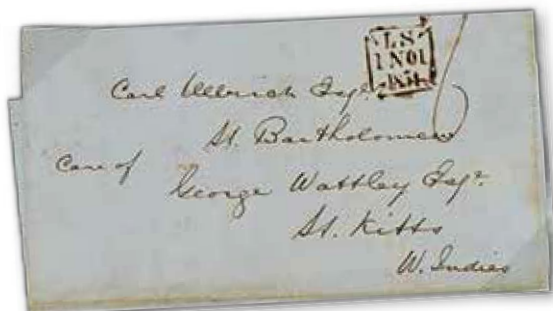 L.S
1 NO 1
1854
Carl Ullrich Esqr.
St. Bartholomew
Care of
George Wattley Esqr.
St. Kitts
W. Indies